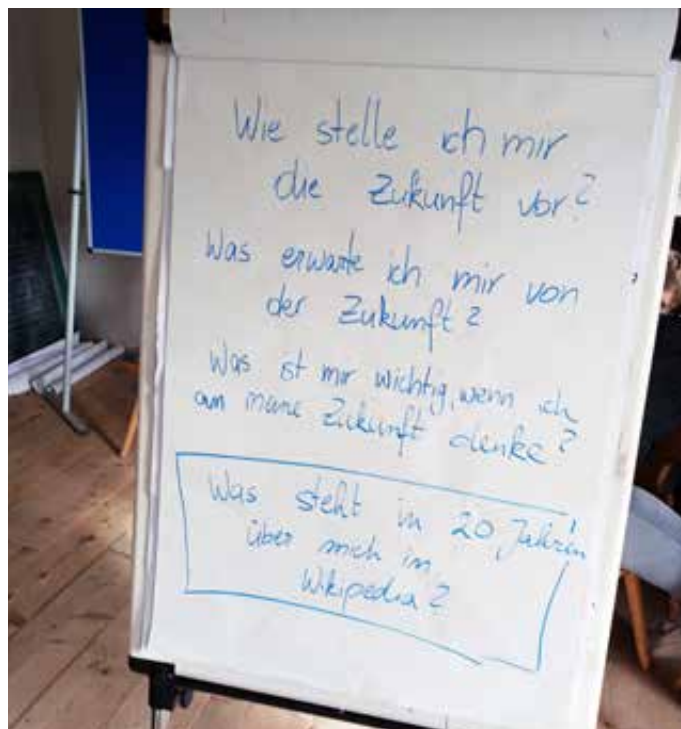 Wie stelle ich mir
die Zukunft vor?
Was erwarte ich mir von
der Zukunft?
Was ist mir wichtig, wenn ich
an meine Zukunft denke?
Was steht in 20 Jahren
über mich in
Wikipedia?